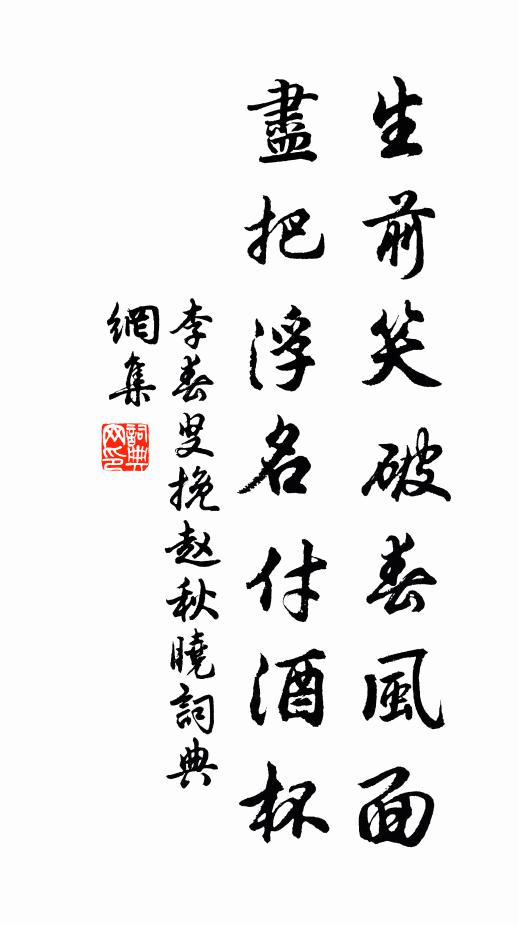 生前笑破春風面
盡把浮名付酒杯
李春叟挽赵秋曉詞典
網集
詞典網印